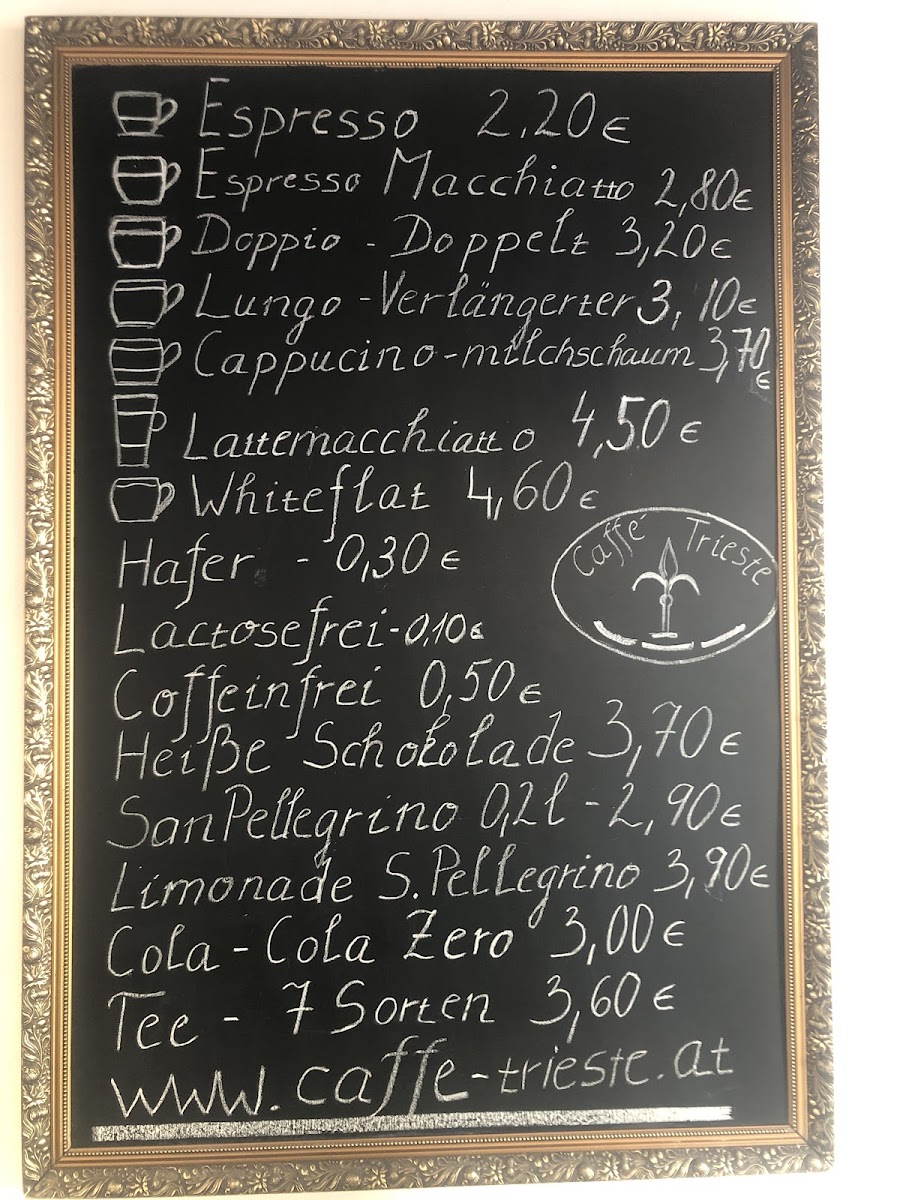 Espresso 2,20€
Espresso Macchiatto 2,80€
Doppio - Doppelt 3,20€
Lungo - Verlängerter 3,10€
Cappucino - milchschaum 3,70€
Lattemacchiatto 4,50€
Whiteflat 4,60€
Caffé Trieste
Hafer - 0,30€
Lactosefrei - 0,10€
Coffeinfrei 0,50€
Heiße Schokolade 3,70€
SanPellegrino 0,2l - 2,90€
Limonade S.Pellegrino 3,90€
Cola - Cola Zero 3,00€
Tee - 7 Sorten 3,60€
www.caffe-trieste.at